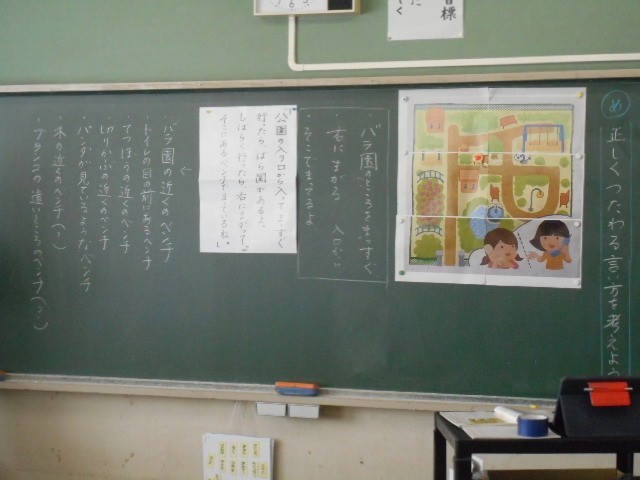 目標
め 正しくつたわる言い方を考えよう
・バラ園のところをまっすぐ
・右にまがる 入口から
・そこでまってるよ
「公園の入り口から入ってまっすぐ
行ったら、ばら園があるよ。
しばらく行ったら、右にまがって。
そこにあるベンチでまっているね。」
・バラ園の近くのベンチ
・トイレの目の前にあるベンチ
・てつぼうの近くのベンチ
・切りかぶの近くのベンチ
・パンダが見ているようなベンチ
・木の近くのベンチ(?)
・ブランコの遠いところのベンチ(?)